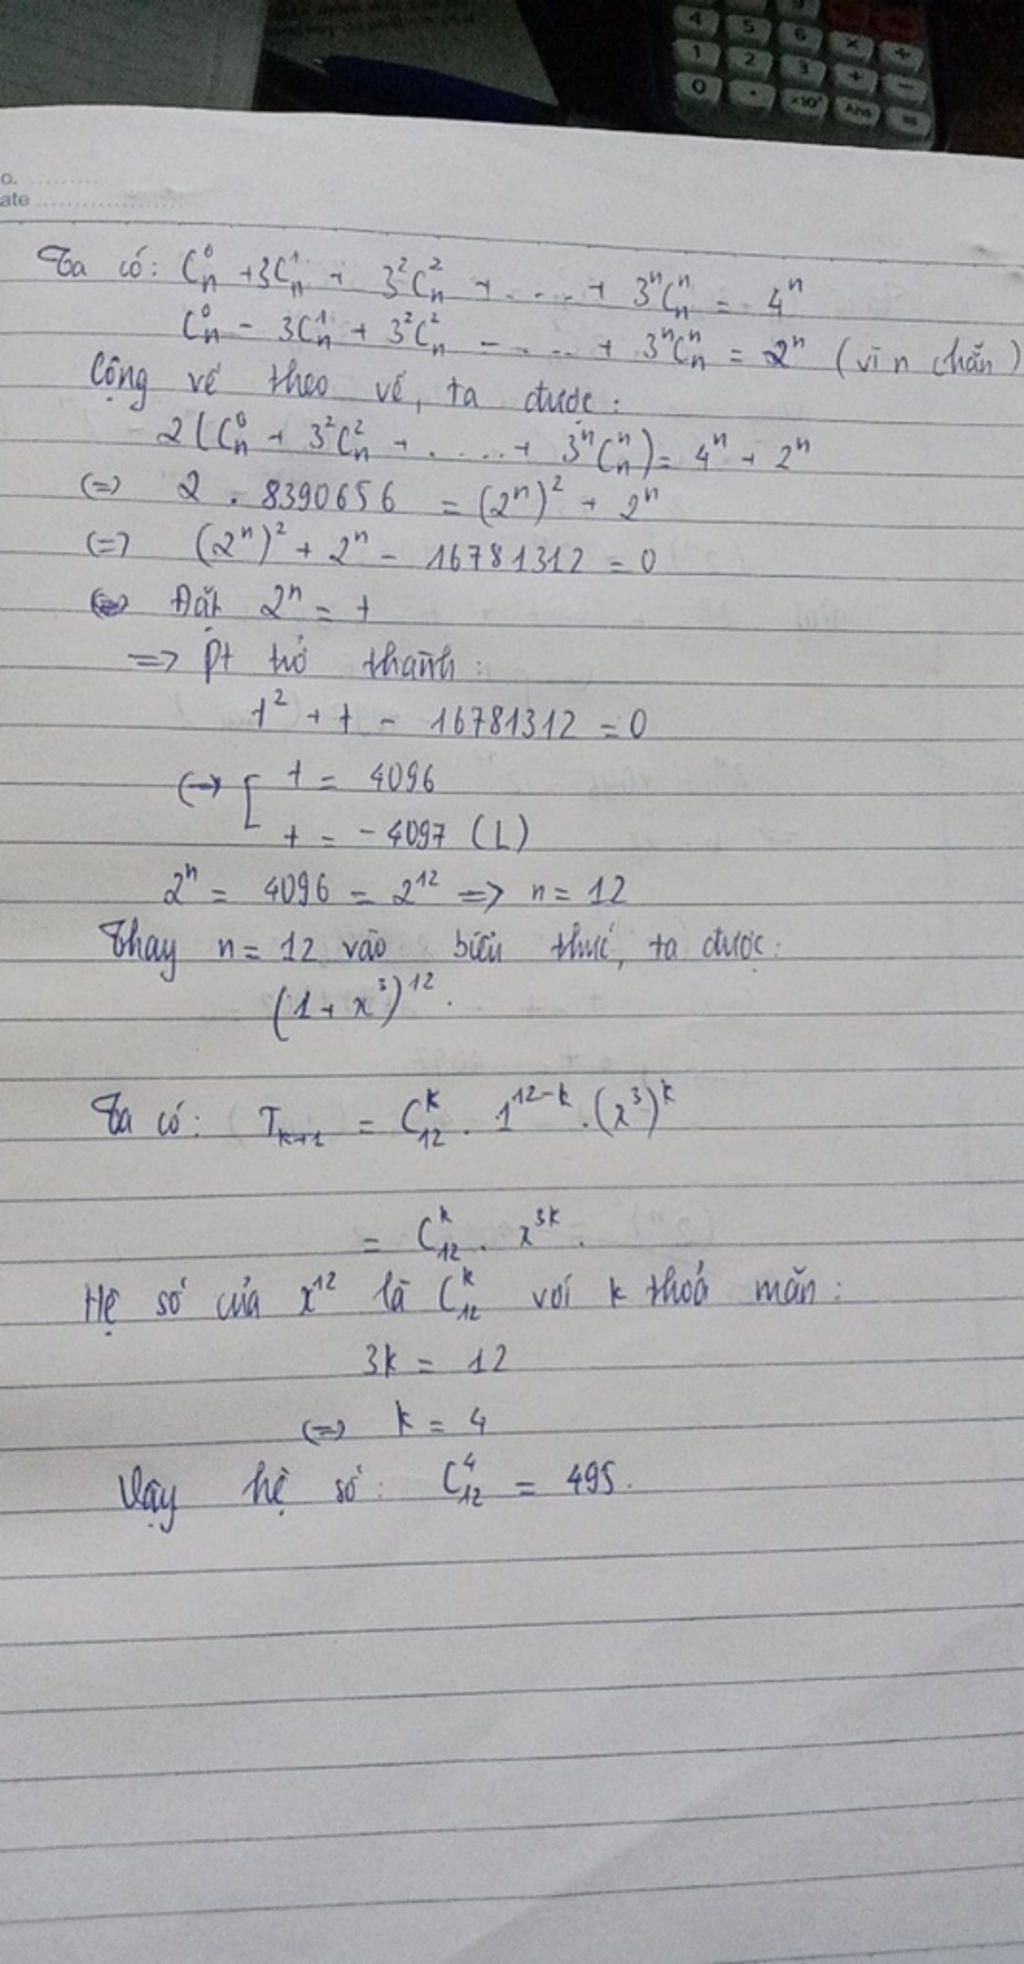 4 5 6 × ÷
1 2 3 + −
0 . ×10ˣ Ans =
o. ..........
ate ....................
Ta có: C_n^0 + 3C_n^1 + 3^2C_n^2 + .... + 3^nC_n^n = 4^n
C_n^0 - 3C_n^1 + 3^2C_n^2 - .... + 3^nC_n^n = 2^n (vì n chẵn)
Cộng vế theo vế, ta được:
2(C_n^0 + 3^2C_n^2 + ..... + 3^nC_n^n) = 4^n + 2^n
(=) 2 . 8390656 = (2^n)^2 + 2^n
(=) (2^n)^2 + 2^n - 16781312 = 0
Đặt 2^n = t
=> Pt trở thành:
t^2 + t - 16781312 = 0
(=) [ t = 4096
t = -4097 (L)
2^n = 4096 = 2^12 => n = 12
Thay n = 12 vào biểu thức, ta được:
(1 + x^3)^12.
Ta có: T_{k+1} = C_12^k . 1^{12-k} . (x^3)^k
= C_12^k . x^{3k}.
Hệ số của x^12 là C_12^k với k thoả mãn:
3k = 12
(=) k = 4
Vậy hệ số: C_12^4 = 495.